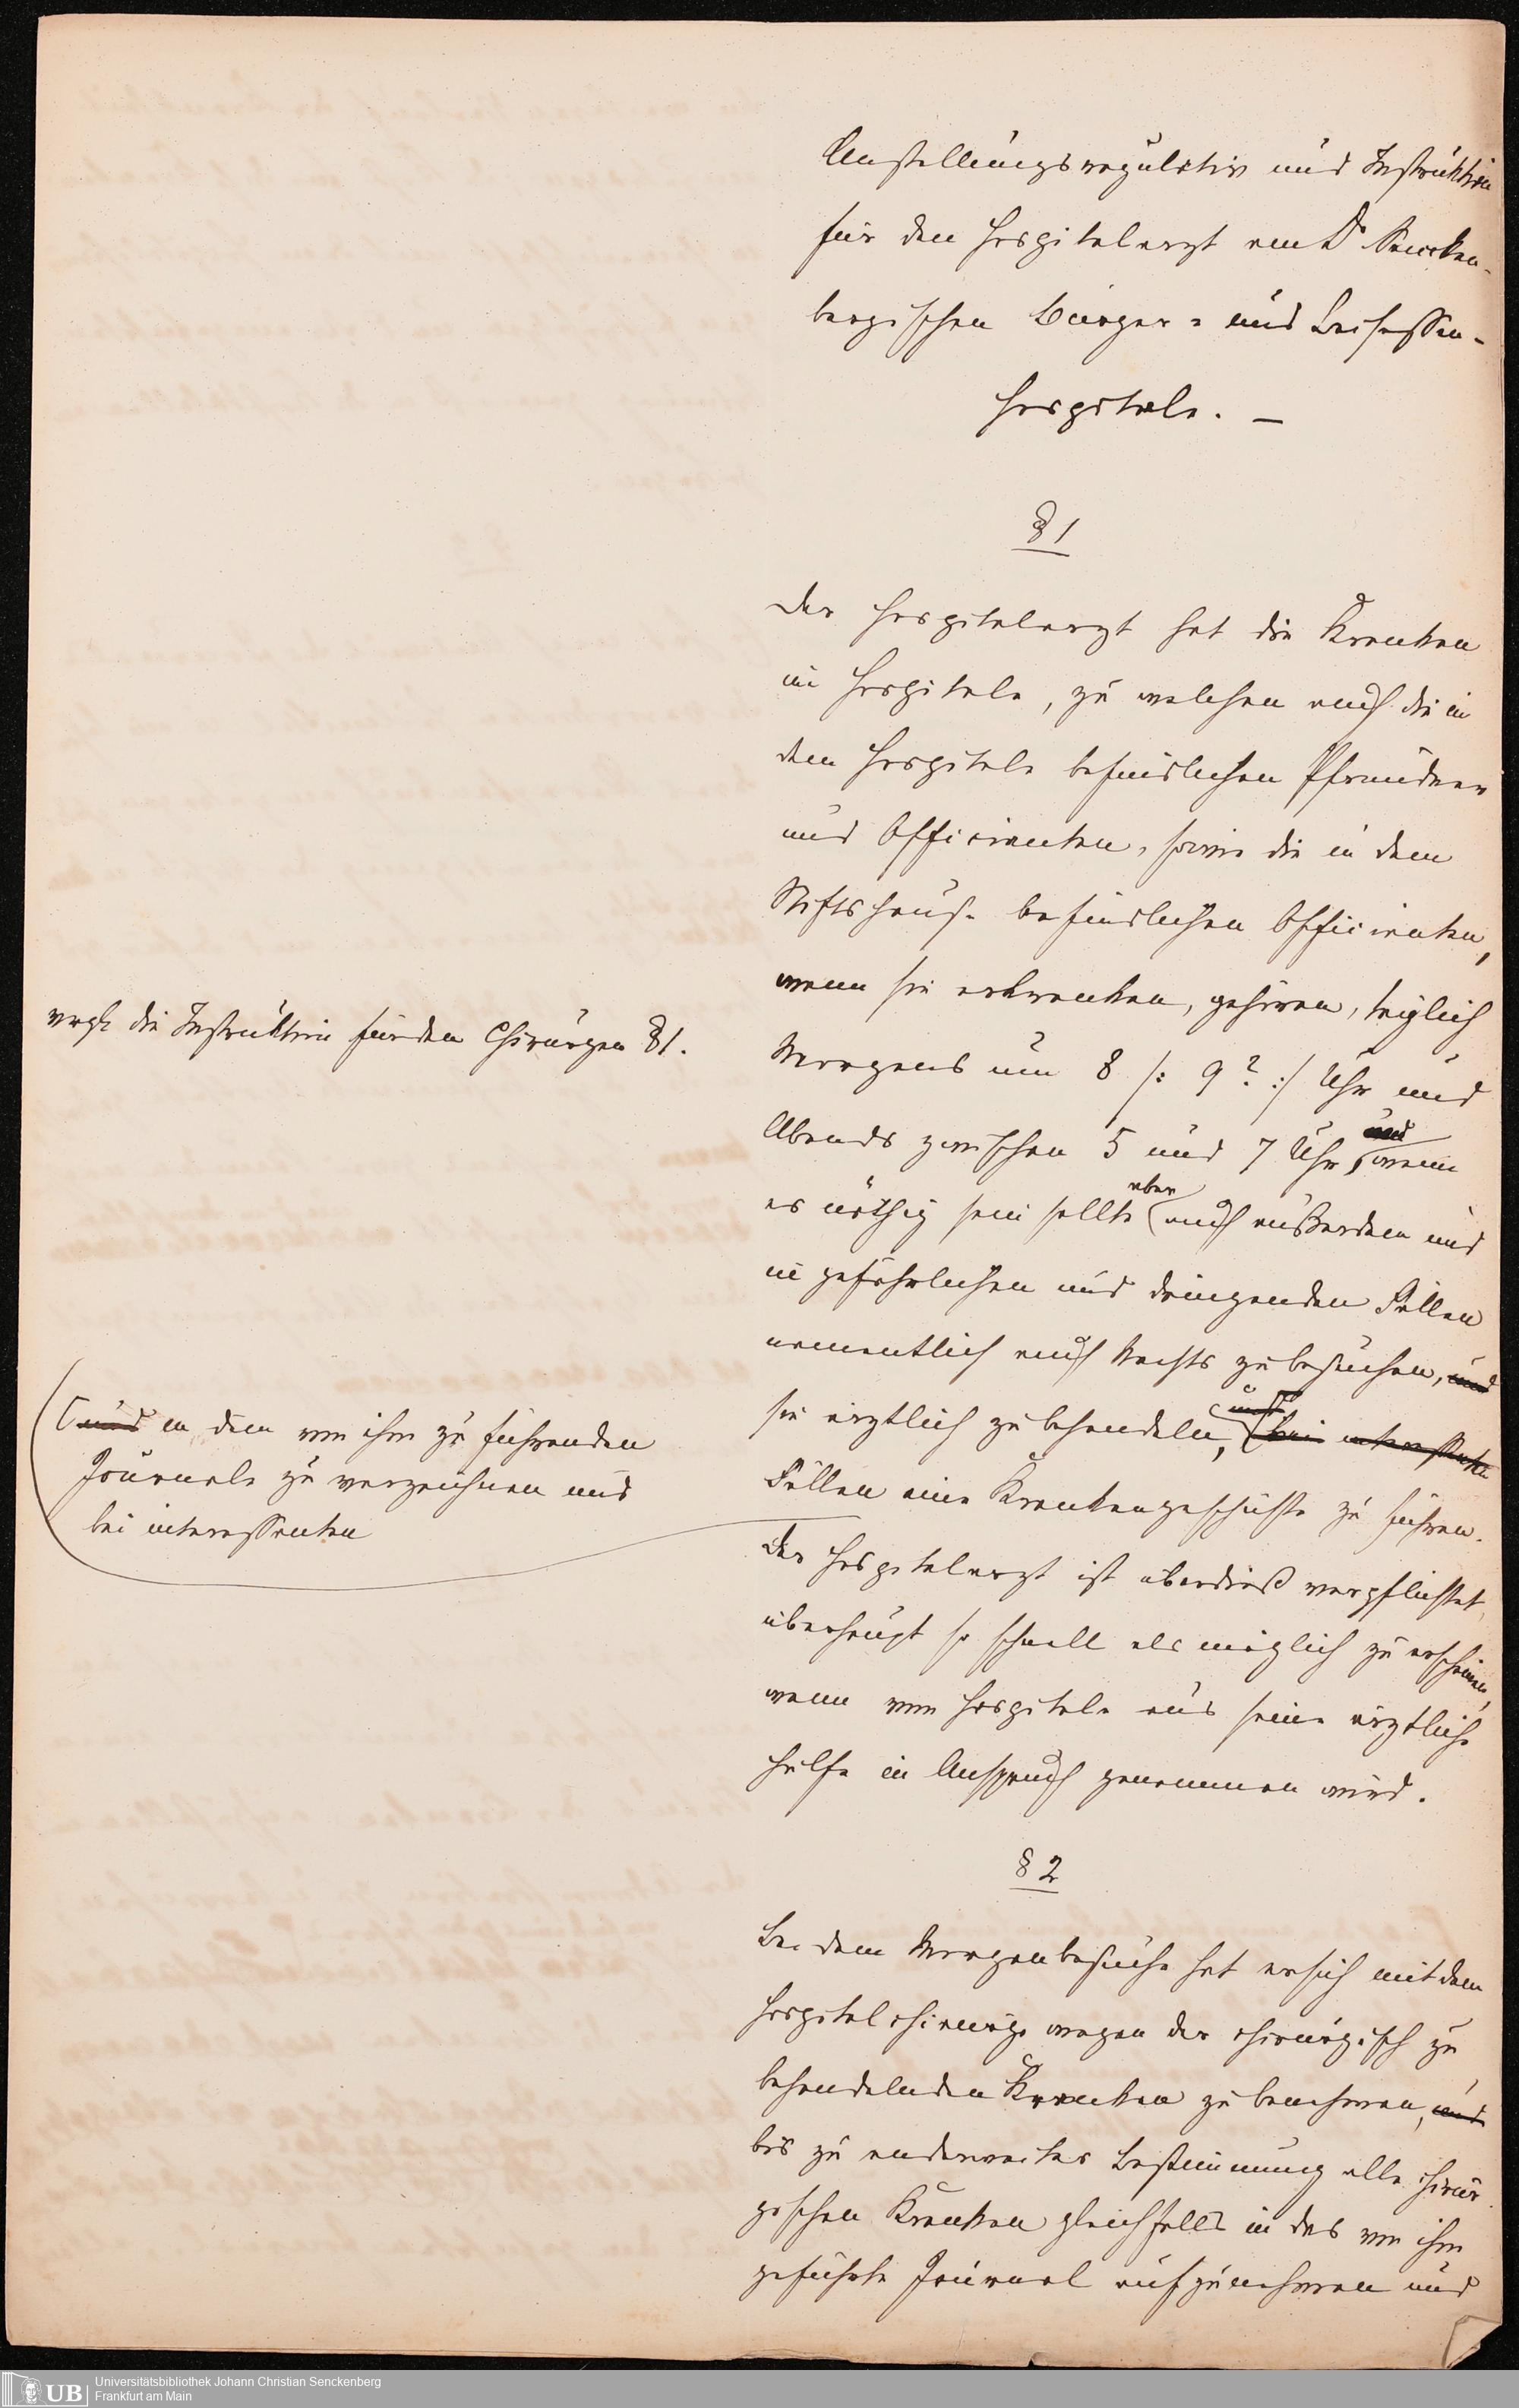 Anstellungsregulativ und Instruktion
für den Hospitalarzt am Dr Sencken-
bergischen Bürger- und Beisassen-
hospitale. —
§ 1
Der Hospitalarzt hat die Kranken
im Hospitale, zu welchen auch die in
dem Hospitale befindlichen Pfründner
und Officianten, sowie die in dem
Stiftshause befindlichen Officianten,
wenn sie erkranken, gehören, täglich
Morgens um 8 /: 9? :/ Uhr und
Abends zwischen 5 und 7 Uhr, und wenn
es nöthig sein sollte aber auch außerdem und
in gefährlichen und dringenden Fällen
namentlich auch Nachts zu besuchen, und
sie ärztlich zu behandeln, und bei interessanten
Fällen eine Krankengeschichte zu führen.
Der Hospitalarzt ist überdieß verpflichtet,
überhaupt so schnell als möglich zu erscheinen,
wenn vom Hospitale aus seine ärztliche
Hülfe in Anspruch genommen wird.
vergl. die Instruktion für den Chirurgen §1.
und in dem von ihm zu führenden
Journale zu verzeichnen und
bei interessanten
§ 2
Bei dem Morgenbesuche hat er sich mit dem
Hospitalchirurge wegen der chirurgisch zu
behandelnden Kranken zu benehmen, und
bis zu anderweiter Bestimmung alle chirur
gischen Kranken gleichfalls in das von ihm
geführte Journal aufzunehmen und
Universitätsbibliothek Johann Christian Senckenberg
UB Frankfurt am Main